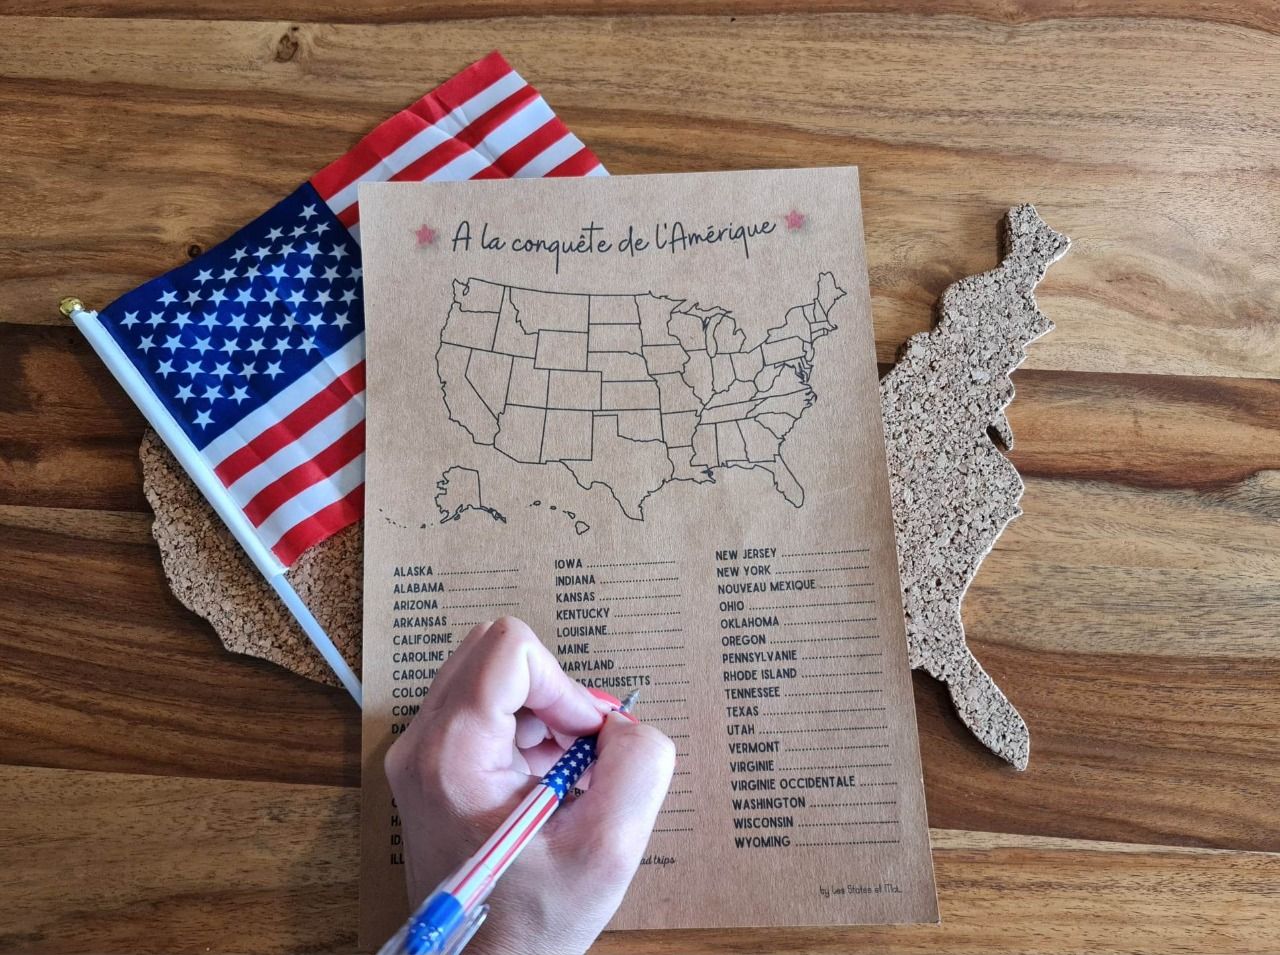 A la conquête de l'Amérique
ALASKA
ALABAMA
ARIZONA
ARKANSAS
CALIFORNIE
CAROLINE
IOWA
INDIANA
KANSAS
KENTUCKY
LOUISIANE
MAINE
MARYLAND
NEW JERSEY
NEW YORK
NOUVEAU MEXIQUE
OHIO
OKLAHOMA
OREGON
PENNSYLVANIE
RHODE ISLAND
TENNESSEE
TEXAS
UTAH
VERMONT
VIRGINIE
VIRGINIE OCCIDENTALE
WASHINGTON
WISCONSIN
WYOMING
trips
by Les States et Moi